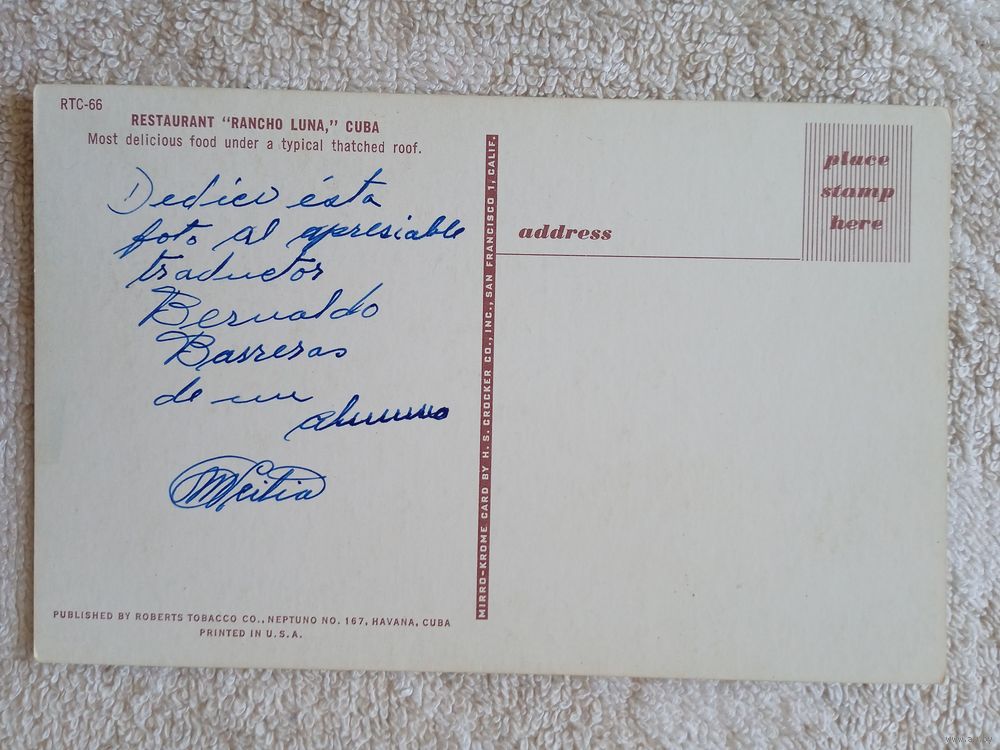 RTC-66
RESTAURANT "RANCHO LUNA," CUBA
Most delicious food under a typical thatched roof.
Dedico ésta
foto al apresiable
traductor
Bernaldo
Barreras
de un
alumno
MIRRO-KROME CARD BY H. S. CROCKER CO., INC., SAN FRANCISCO 1, CALIF.
address
place
stamp
here
PUBLISHED BY ROBERTS TOBACCO CO., NEPTUNO NO. 167, HAVANA, CUBA
PRINTED IN U.S.A.